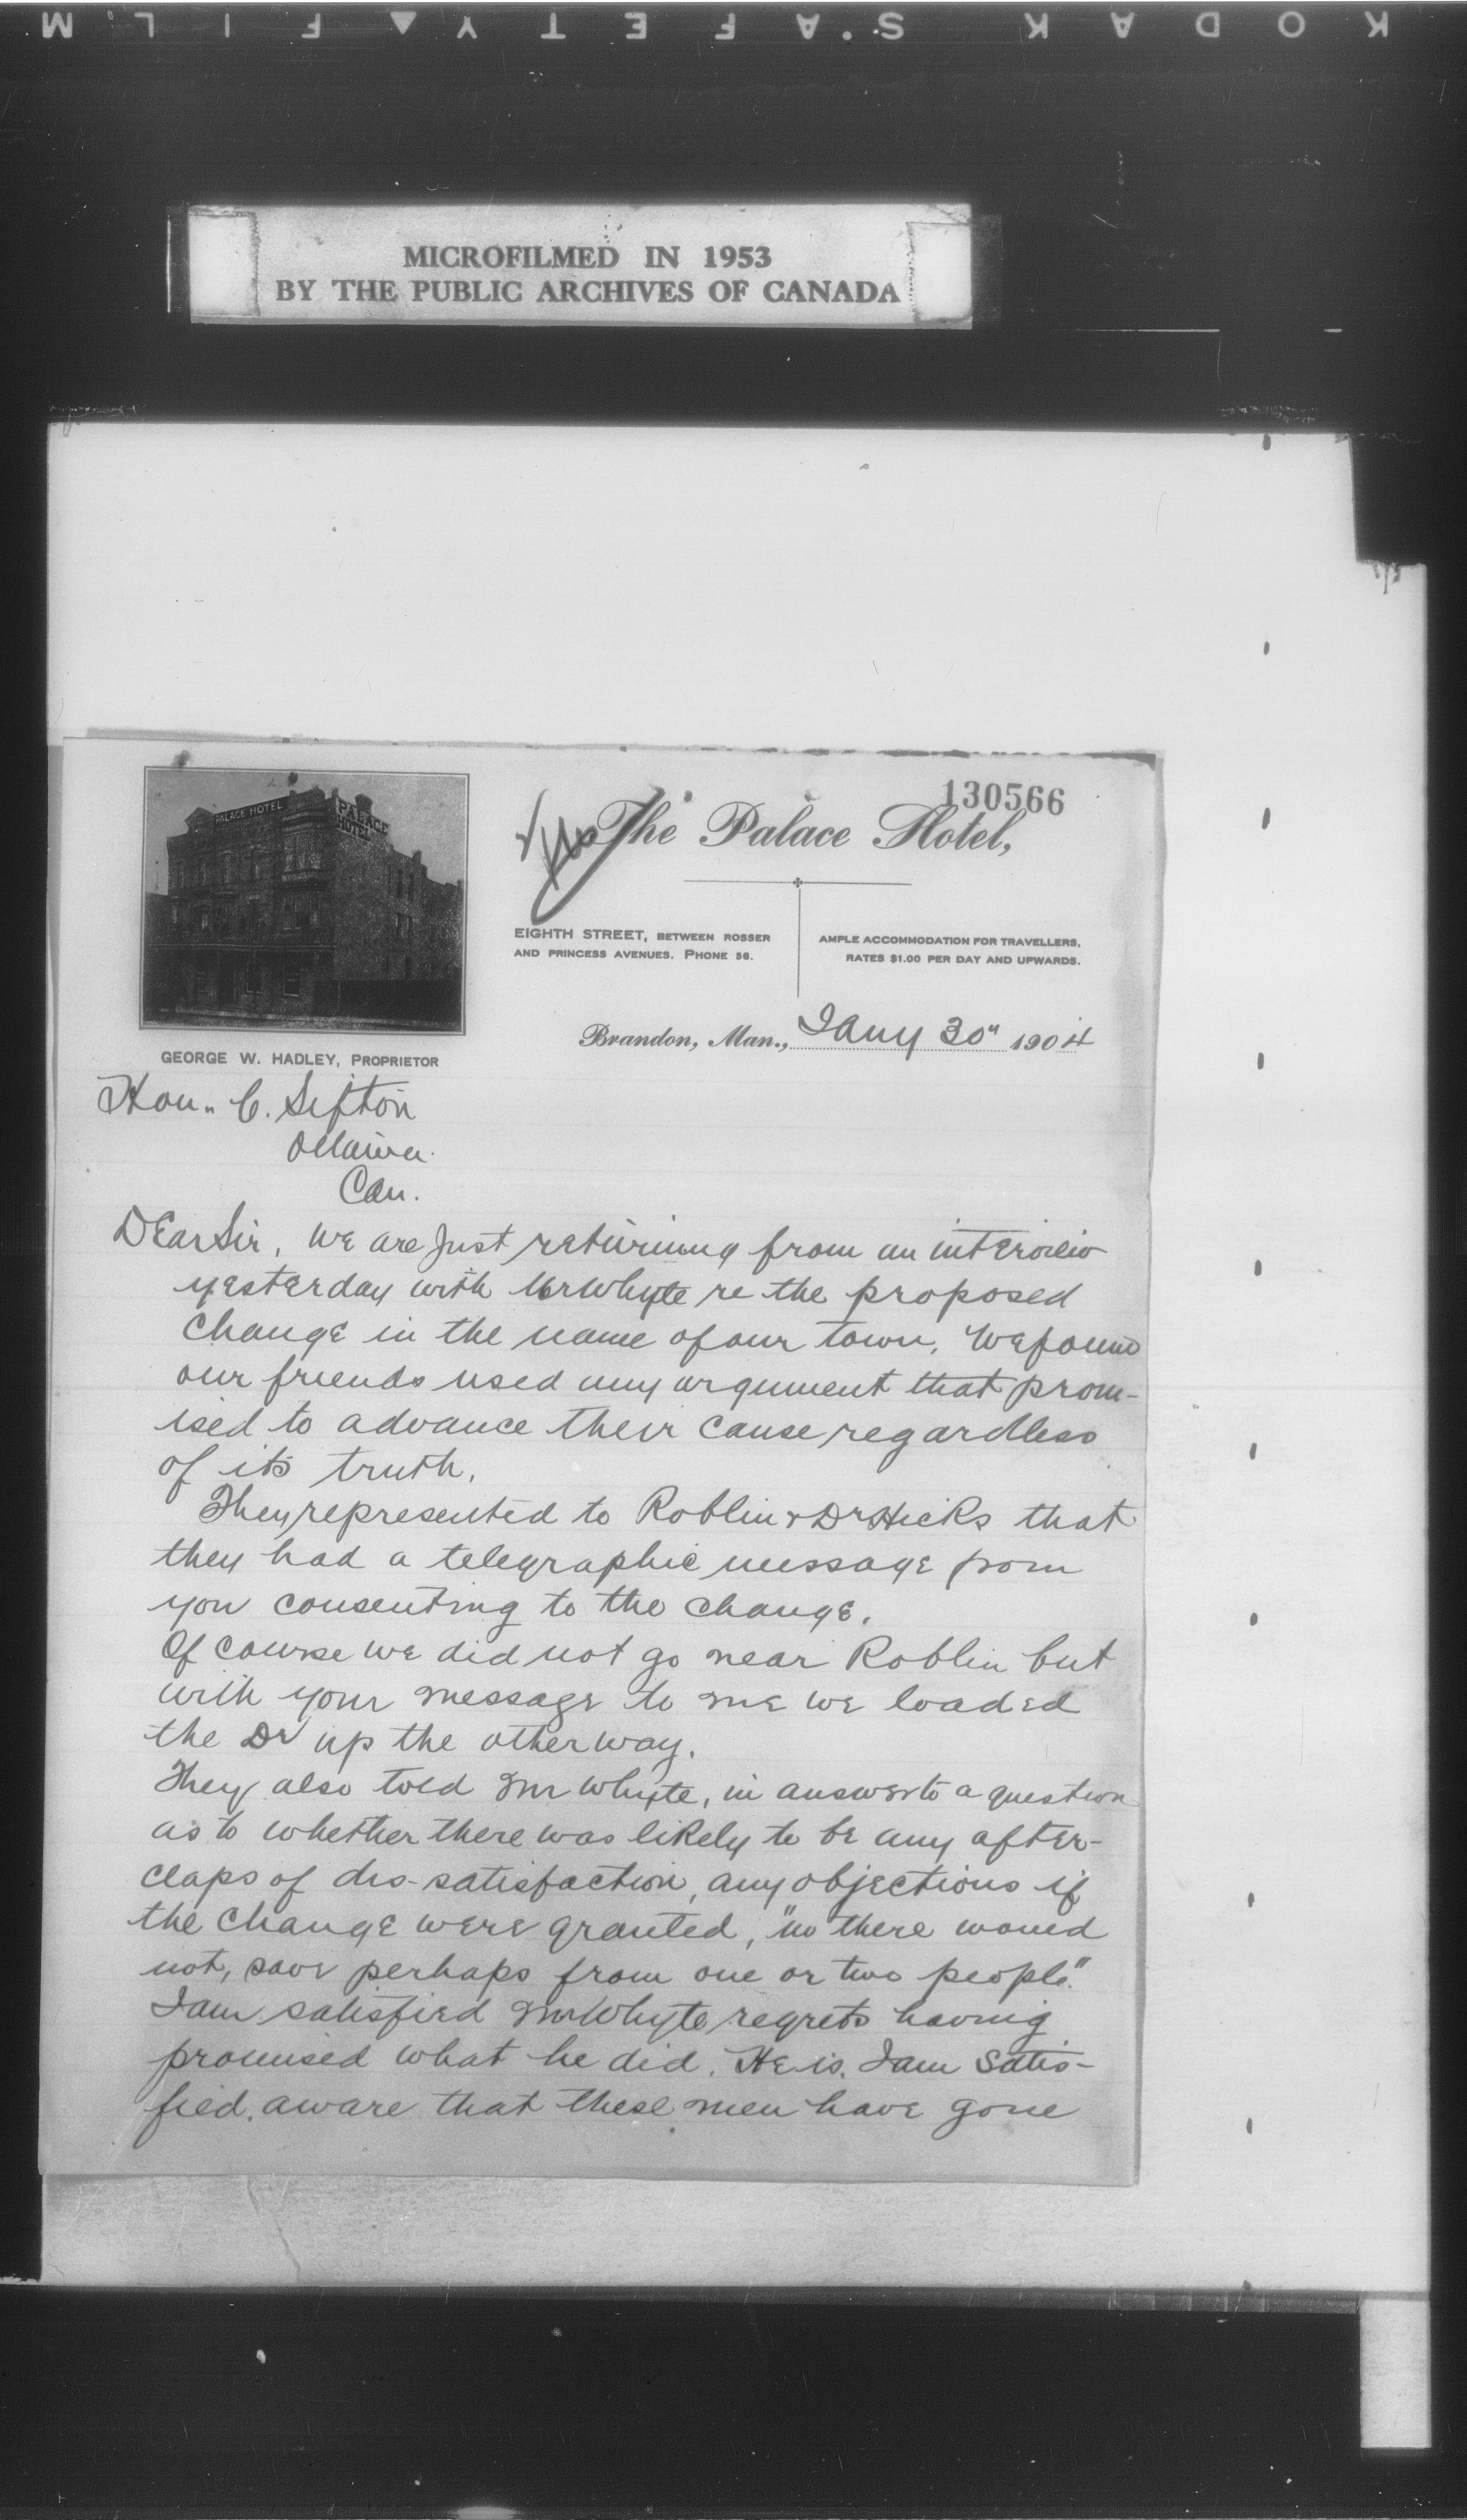 KODAK SAFETY FILM
MICROFILMED IN 1953
BY THE PUBLIC ARCHIVES OF CANADA
130566
PALACE HOTEL
PALACE
HOTEL
The Palace Hotel,
EIGHTH STREET, BETWEEN ROSSER
AND PRINCESS AVENUES. PHONE 56.
AMPLE ACCOMMODATION FOR TRAVELLERS,
RATES $1.00 PER DAY AND UPWARDS.
GEORGE W. HADLEY, PROPRIETOR
Brandon, Man., Jany 30" 1904
Hon. C. Sifton
Ottawa
Can.
Dear Sir, We are just returning from an interview
yesterday with Mr Whyte re the proposed
change in the name of our town. We found
our friends used any argument that prom-
ised to advance their cause regardless
of its truth.
They represented to Roblin & Dr Hicks that
they had a telegraphic message from
you consenting to the change.
Of course we did not go near Roblin but
with your message to me we loaded
the Dr up the other way.
They also told Mr Whyte, in answer to a question
as to whether there was likely to be any after-
claps of dis-satisfaction, any objections if
the change were granted, "no there would
not, save perhaps from one or two people."
I am satisfied Mr Whyte regrets having
promised what he did. He is, I am satis-
fied, aware that these men have gone